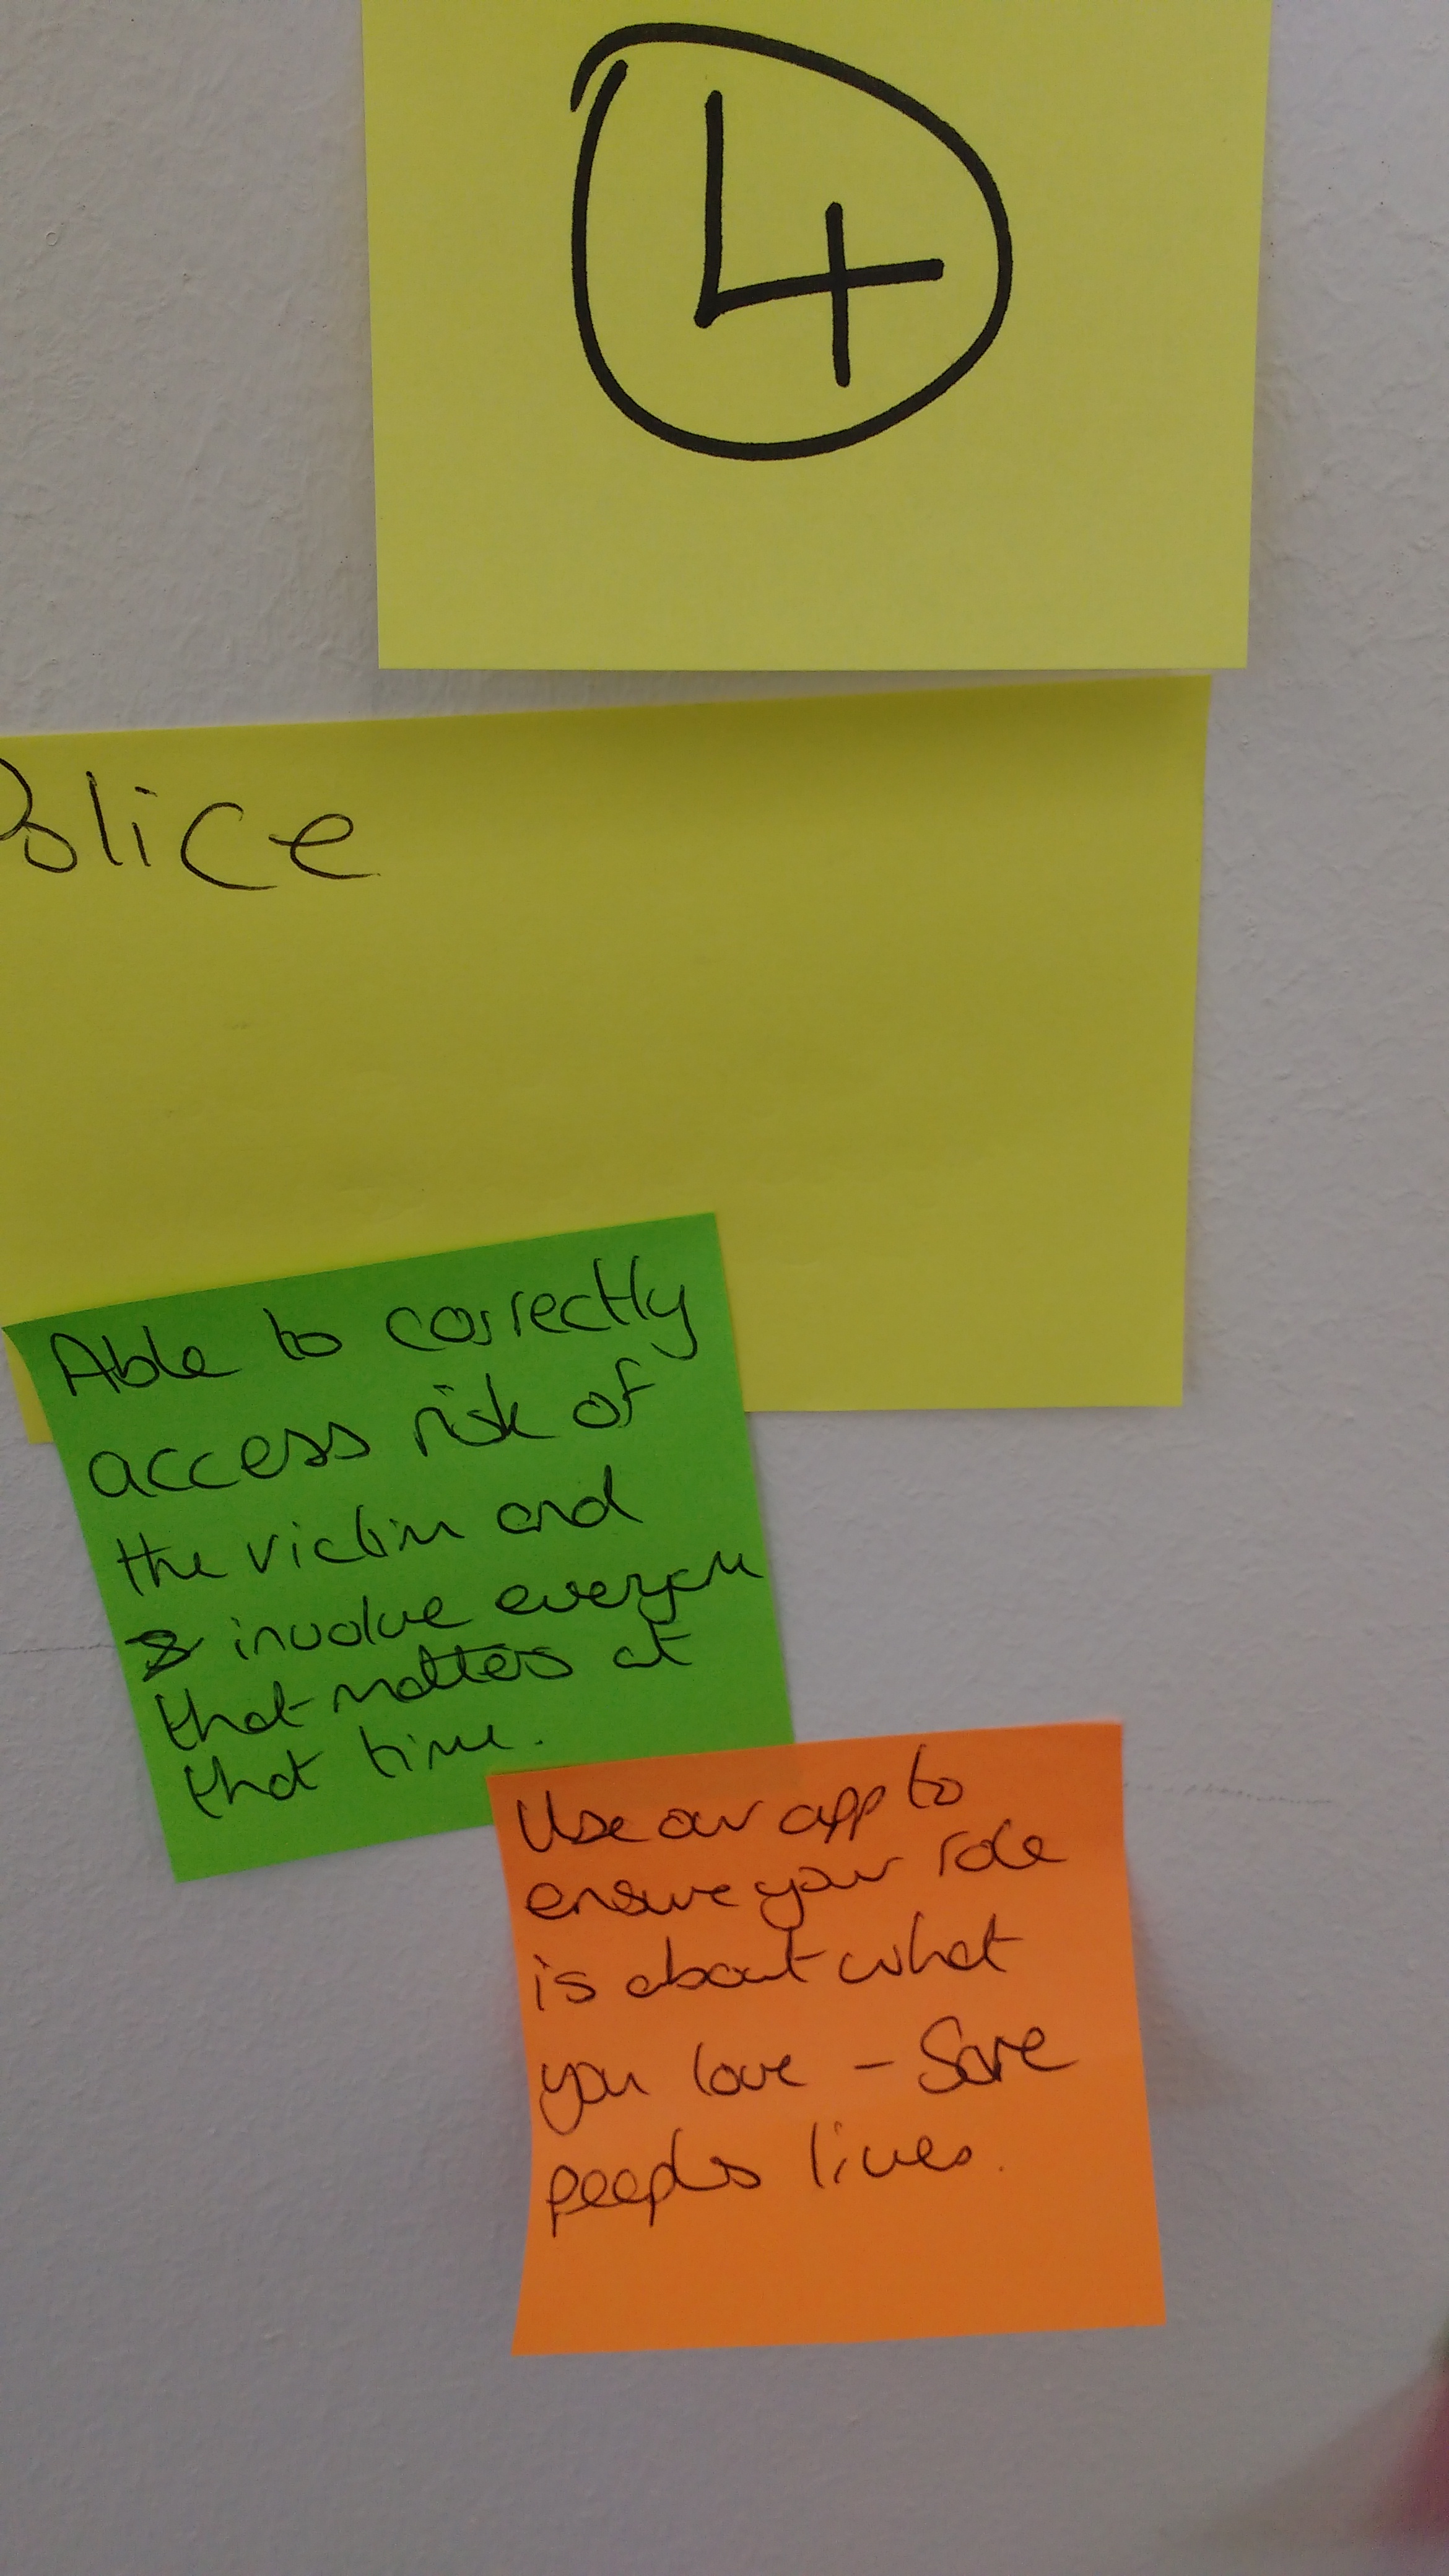 4
Police
Able to correctly
access risk of
the victim and
& involve everyone
that matters at
that time.
Use our app to
ensure your role
is about what
you love - Save
peoples lives.